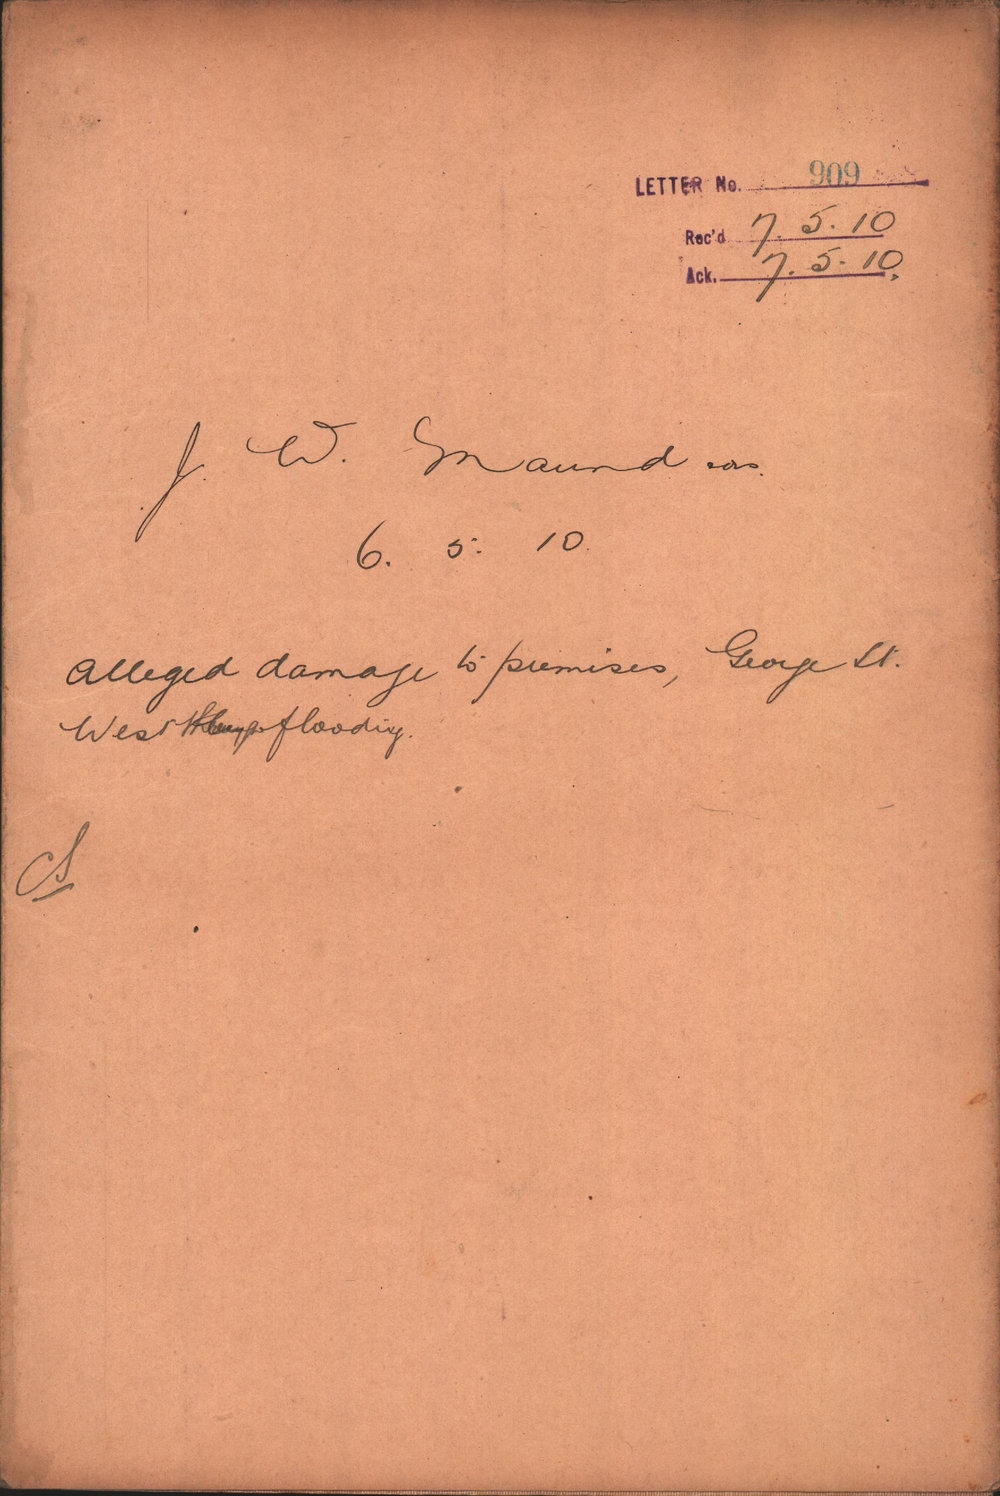 LETTER No. 909
Rec'd 7. 5. 10
Ack. 7. 5. 10.
J. W. Maund
6. 5. 10
Alleged damage to premises, George St.
West flooding.